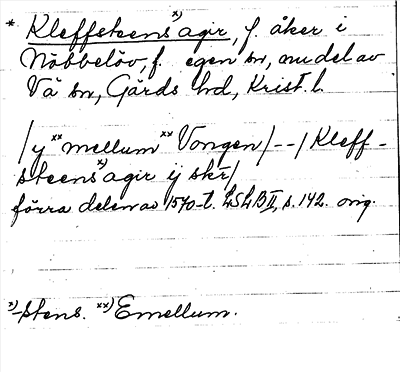 * Kleffsteens x) agir, f. åker i
Nöbbelöv, f. egen sn, nu del av
Vä sn, Gärds hd, Krist. l.
/y xx mellum xx Vongen/--/Kleff-
steens x) agir ij skr/
förra delen av 1570-t. LSLB II, s. 142. orig.
x) -stens. xx) Emellum.